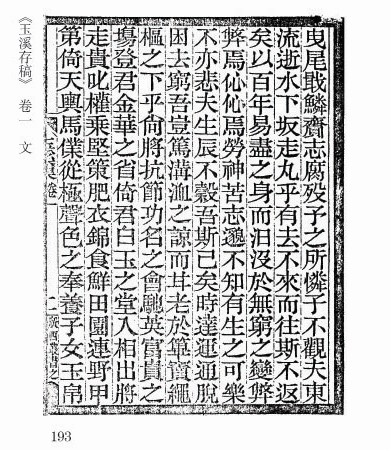 曳尾戢鱗齎志廢歿予之所憐子不觀夫東
流逝水下坂走丸乎有去不來而往斯不返
矣以百年易盡之身而汨沒於無窮之變弊
弊焉伈伈焉勞神苦志邈不知有生之可樂
不亦悲夫生辰不穀吾斯已矣時達運通脫
困去窮吾豈篤溝洫之諒而耳老於篳竇繩
樞之下乎尙將抗節功名之會馳英富貴之
塲登君金華之省倚君白玉之堂入相出將
走貴叱權乘堅策肥衣錦食鮮田園連野甲
第倚天輿馬僕從極聲色之奉養子女玉帛
《玉溪存稿》 卷一 文
193